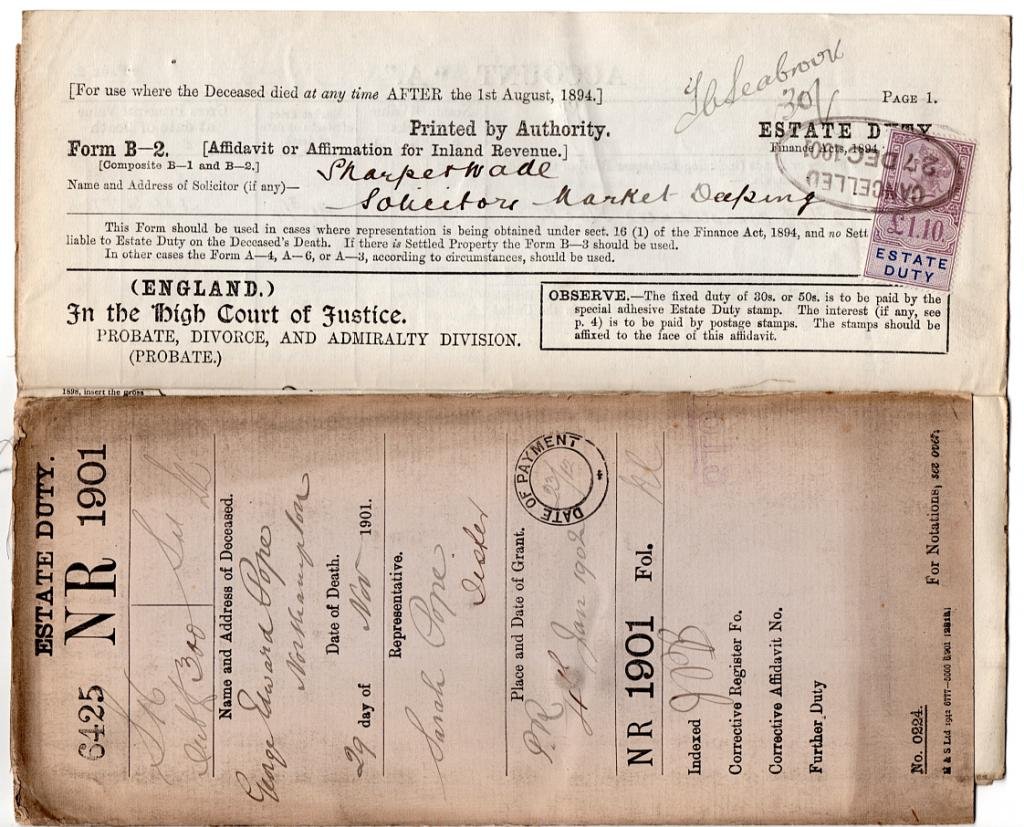 [For use where the Deceased died at any time AFTER the 1st August, 1894.]
Seabrook
30/
PAGE 1.
Printed by Authority.
ESTATE DUTY
Finance Acts, 1894
Form B—2. [Affidavit or Affirmation for Inland Revenue.]
[Composite B—1 and B—2.]
Name and Address of Solicitor (if any)— Sharpe & Wade
Solicitors Market Deeping
CANCELLED
27 DEC 1901
£1.10
ESTATE
DUTY
This Form should be used in cases where representation is being obtained under sect. 16 (1) of the Finance Act, 1894, and no Sett
liable to Estate Duty on the Deceased's Death. If there is Settled Property the Form B—3 should be used.
In other cases the Form A—4, A—6, or A—3, according to circumstances, should be used.
(ENGLAND.)
In the High Court of Justice.
PROBATE, DIVORCE, AND ADMIRALTY DIVISION.
(PROBATE.)
OBSERVE.—The fixed duty of 30s. or 50s. is to be paid by the
special adhesive Estate Duty stamp. The interest (if any, see
p. 4) is to be paid by postage stamps. The stamps should be
affixed to the face of this affidavit.
1898, insert the gross
ESTATE DUTY.
6425 NR 1901
300
Name and Address of Deceased.
George Edward Pope
Northampton
Date of Death.
29 day of Nov 1901.
Representative.
Sarah Pope
Sister
Place and Date of Grant.
P.R
Jan 1902
DATE OF PAYMENT
23/12
NR 1901 Fol.
Indexed
Corrective Register Fo.
Corrective Affidavit No.
Further Duty
No. 0224.
For Notations, see over.